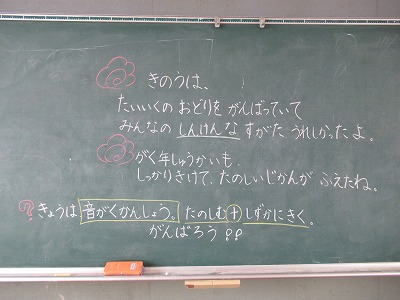 きのうは、
たいいくの おどりを がんばっていて
みんなの しんけんな すがた うれしかったよ。
がく年しゅうかいも、
しっかりきけて、たのしいじかんが ふえたね。
? きょうは 音がくかんしょう。 たのしむ + しずかにきく。
がんばろう!!